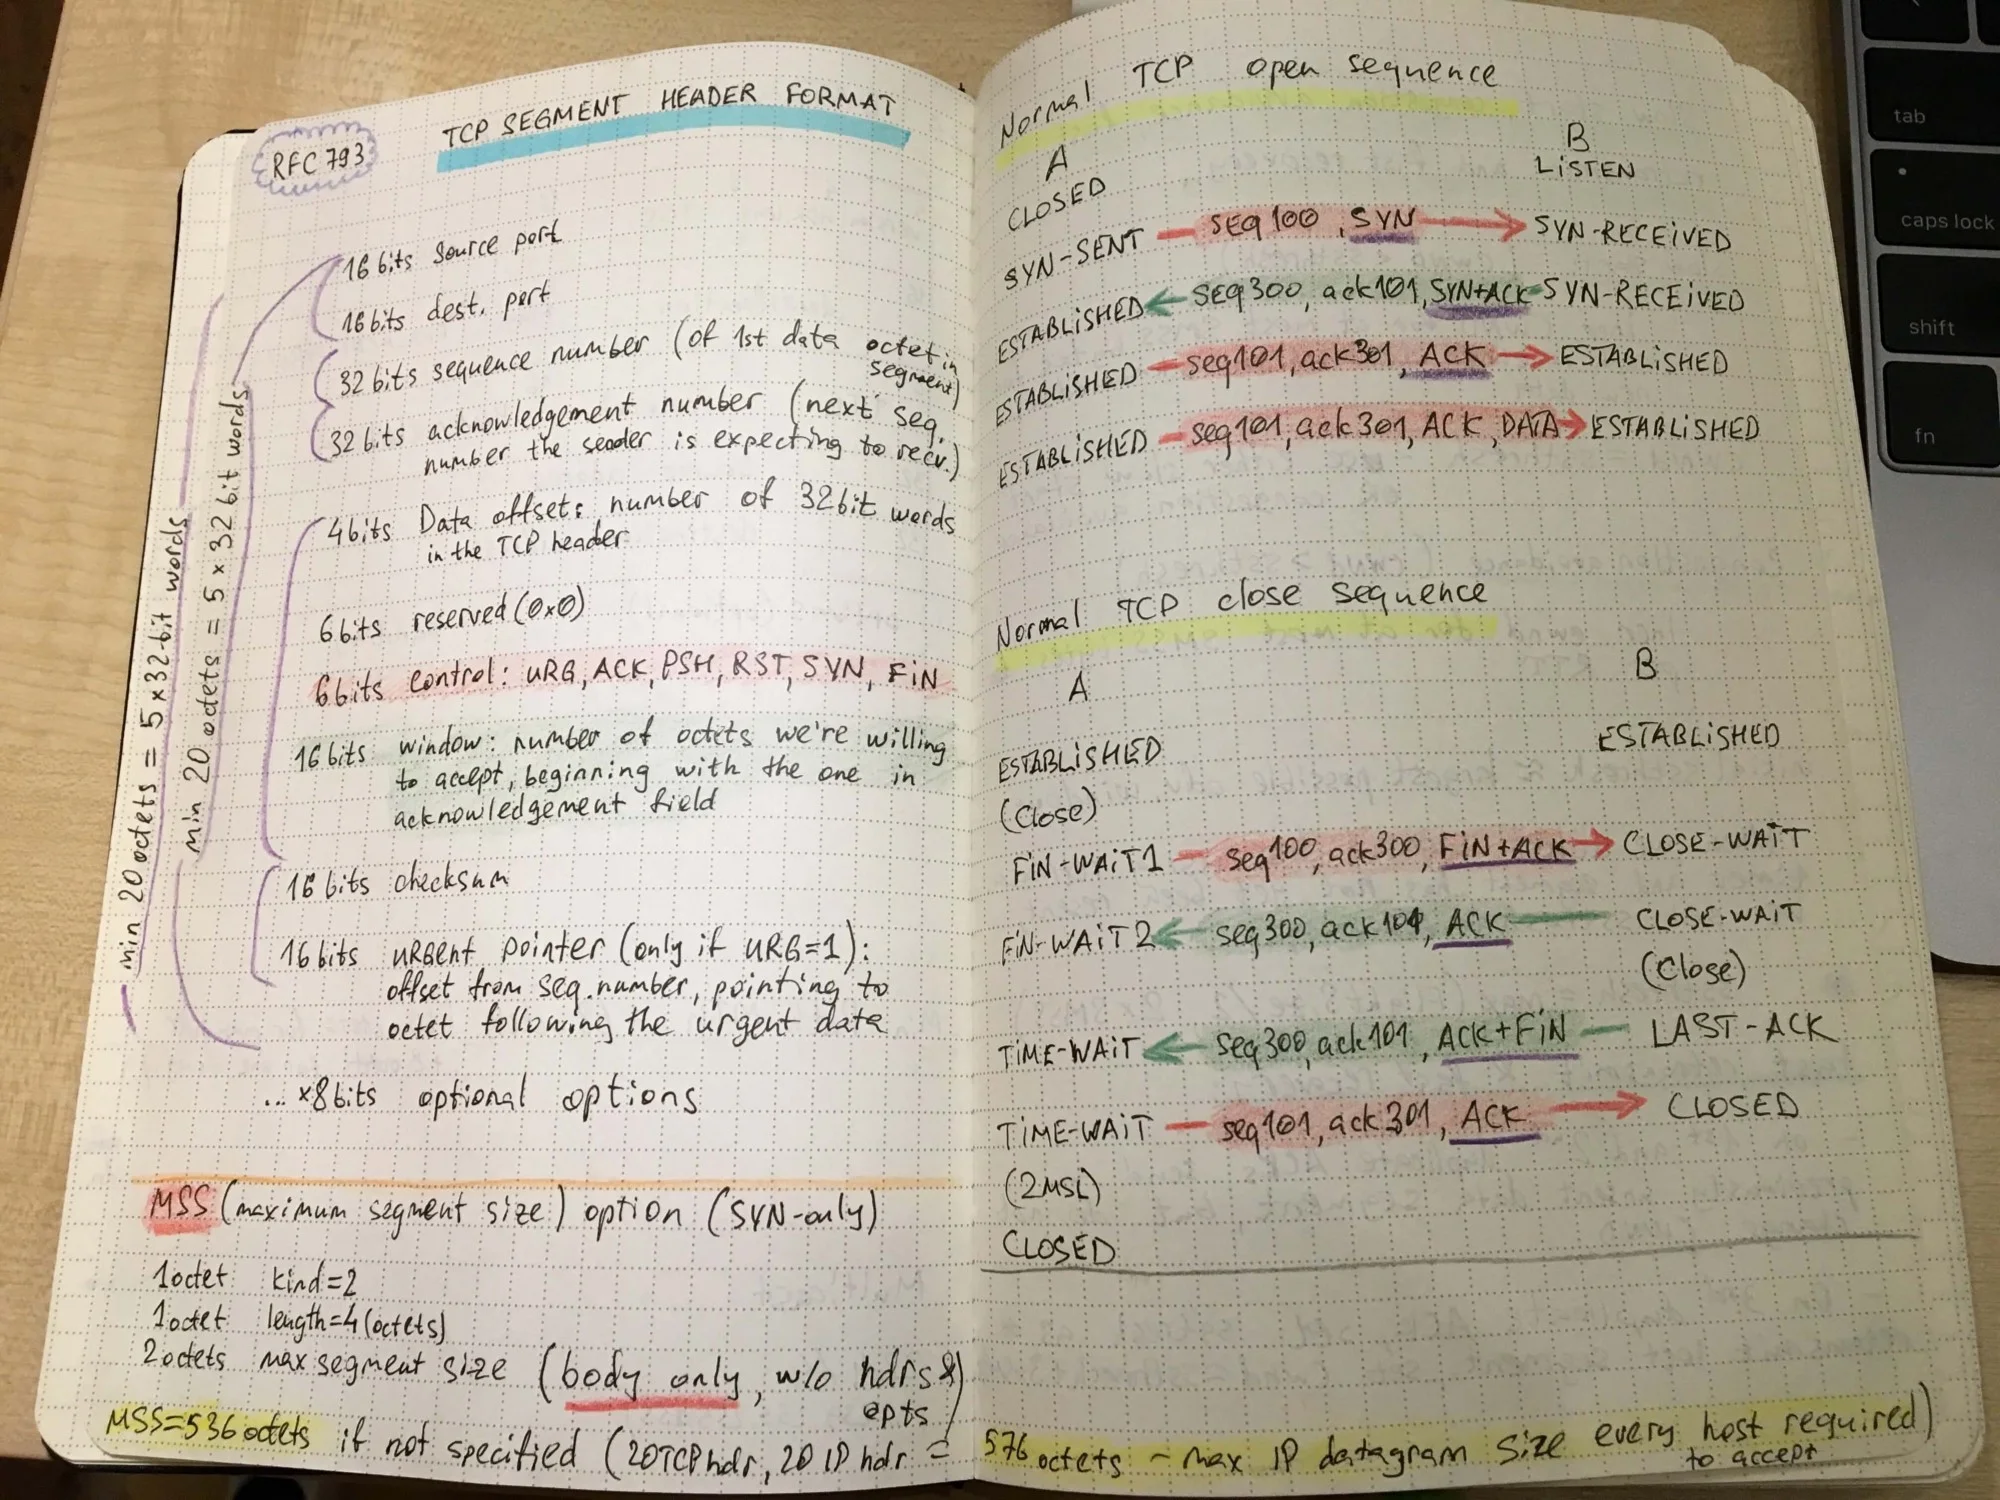 RFC 793
TCP SEGMENT HEADER FORMAT
16 bits source port
16 bits dest. port
32 bits sequence number (of 1st data octet in
segment)
32 bits acknowledgement number (next seq.
number the sender is expecting to recv.)
4 bits Data offset: number of 32 bit words
in the TCP header
6 bits reserved (0x0)
6 bits control: URG, ACK, PSH, RST, SYN, FiN
16 bits window: number of octets we're willing
to accept, beginning with the one in
acknowledgement field
16 bits checksum
16 bits URGent pointer (only if URG=1):
offset from seq. number, pointing to
octet following the urgent data
... x8 bits optional options
min 20 octets = 5 x 32-bit words
min 20 octets = 5 x 32 bit words
MSS (maximum segment size) option (SYN-only)
1 octet kind=2
1 octet length=4 (octets)
2 octets max segment size (body only, w/o hdrs &
opts)
MSS=536 octets if not specified (20 TCP hdr, 20 IP hdr =
Normal TCP open sequence
A B
CLOSED LiSTEN
SYN-SENT SEQ 100, SYN SYN-RECEiVED
ESTABLiSHED SEQ 300, ack 101, SYN+ACK SYN-RECEiVED
ESTABLiSHED seq 101, ack 301, ACK ESTABLiSHED
ESTABLiSHED seq 101, ack 301, ACK, DATA ESTABLiSHED
Normal TCP close sequence
A B
ESTABLiSHED ESTABLiSHED
(Close)
FiN-WAiT1 seq 100, ack 300, FiN+ACK CLOSE-WAiT
FiN-WAiT2 seq 300, ack 101, ACK CLOSE-WAiT
(Close)
TiME-WAiT seq 300, ack 101, ACK+FiN LAST-ACK
TiME-WAiT seq 101, ack 301, ACK CLOSED
(2MSL)
CLOSED
576 octets - max IP datagram size every host required)
to accept
tab
caps lock
shift
fn